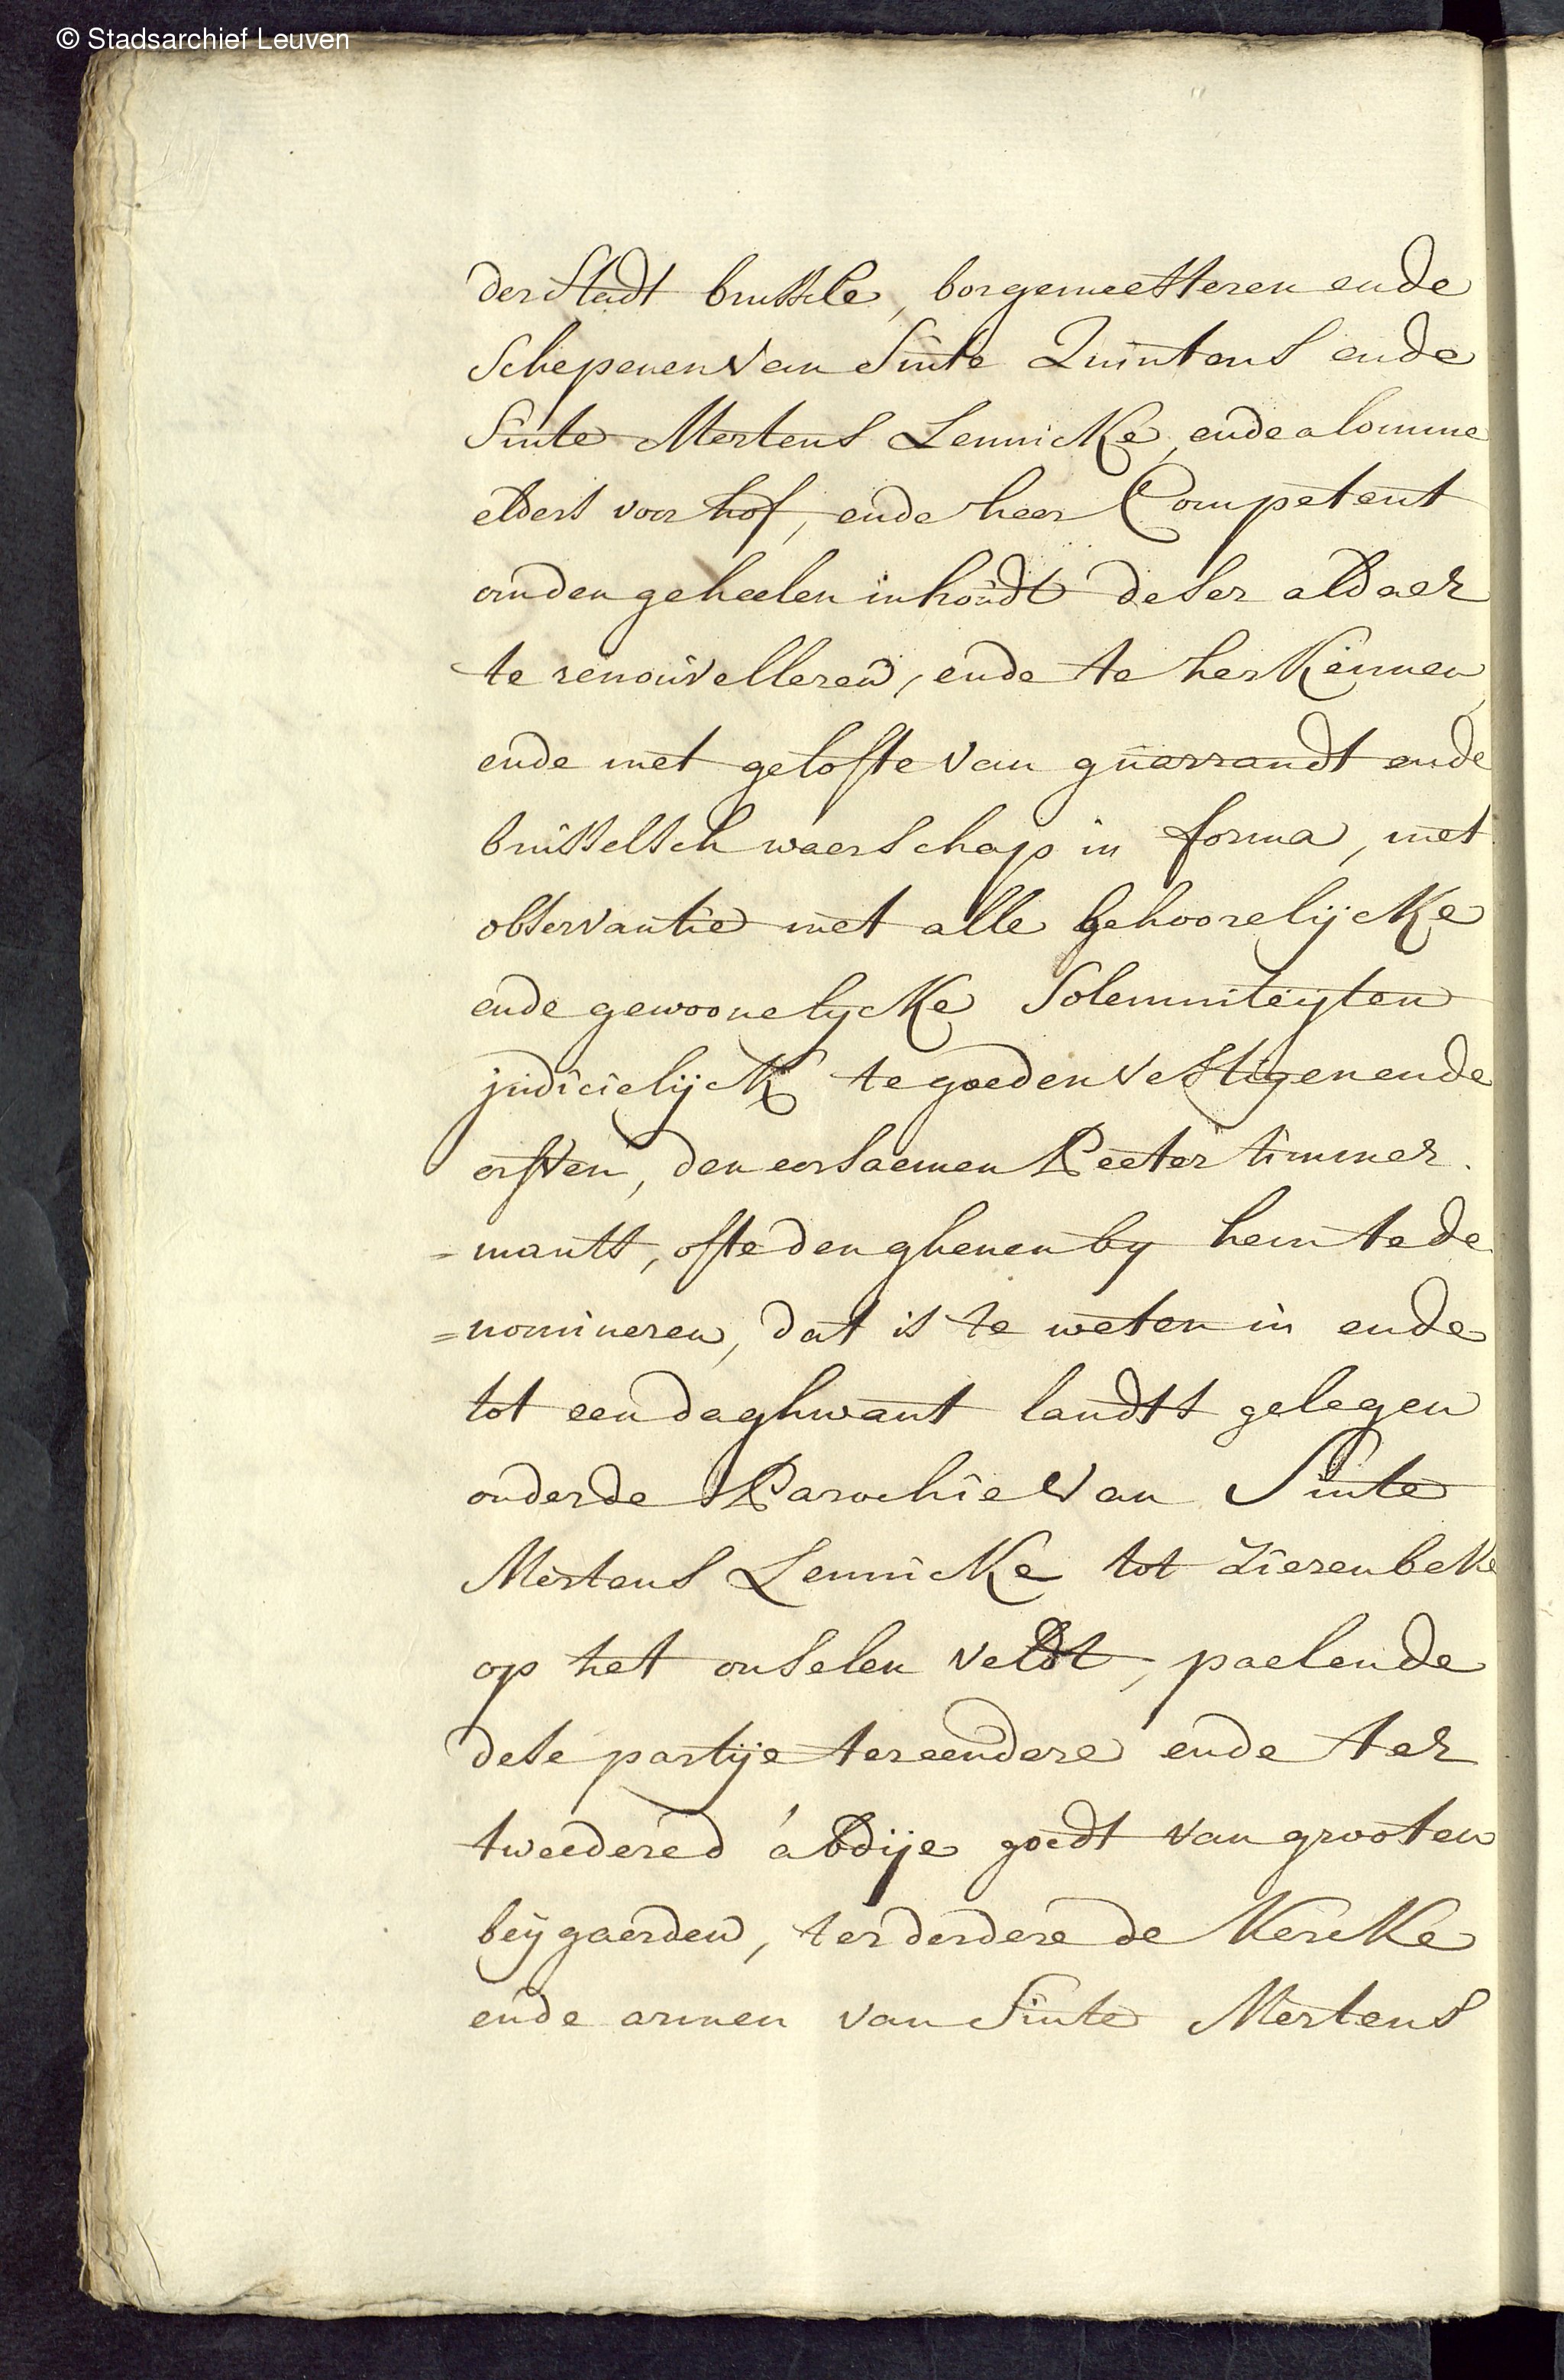 © Stadsarchief Leuven
der Stadt brussele, borgemeesteren ende
Schepenen van Sinte Quintens ende
Sinte Mertens Lennicke, ende alomme
elders voor hof, ende heer Competent
om den geheelen inhoudt deser aldaer
te renouvelleren, ende te herkennen
ende met gelofte van guarrandt ende
brusselsch waerschap in forma, met
observantie met alle behoorelijcke
ende gewoonelycke Solemniteyten
judicielijck te goeden vestigen ende
erfven, den eersaemen Peeter timmer
=mants, ofte den ghenen by hem te de
=nomineren, dat is te weten in ende
tot een daghwant landts gelegen
onder de Parochie van Sinte
Mertens Lennicke tot Zierenbeke
op het onselen veldt, paelende
dese partije ter eendere ende ter
tweedere d'abdije goedt van grooten
beygaerden, ter derdere de Kercke
ende armen van Sinte Mertens